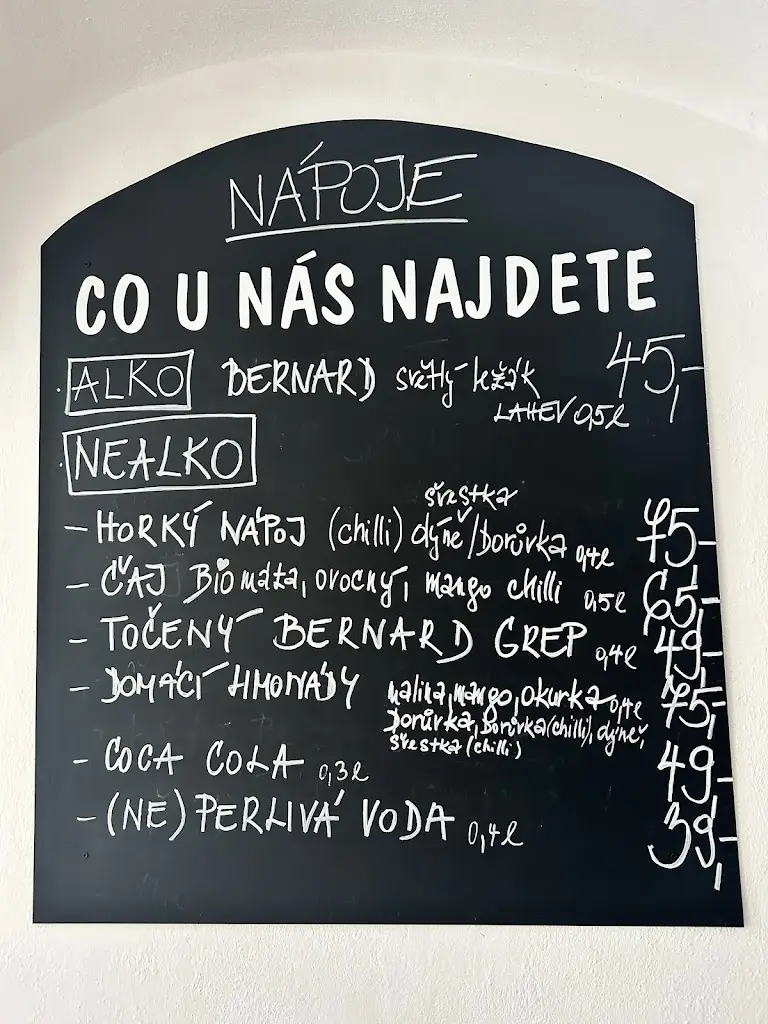 NÁPOJE
CO U NÁS NAJDETE
ALKO BERNARD světlý ležák 45,-
LAHEV 0,5l
NEALKO
švestka
- HORKÝ NÁPOJ (chilli) dýně/Borůvka 0,4l 75,-
- ČAJ BIO máta, ovocný, mango chilli 0,5l 65,-
- TOČENÝ BERNARD GREP 0,4l 49,-
- DOMÁCÍ LIMONÁDY malina, mango, okurka 0,4l 75,-
Borůvka, Borůvka (chilli), dýně,
švestka (chilli)
- COCA COLA 0,3l 49,-
- (NE) PERLIVÁ VODA 0,4l 39,-